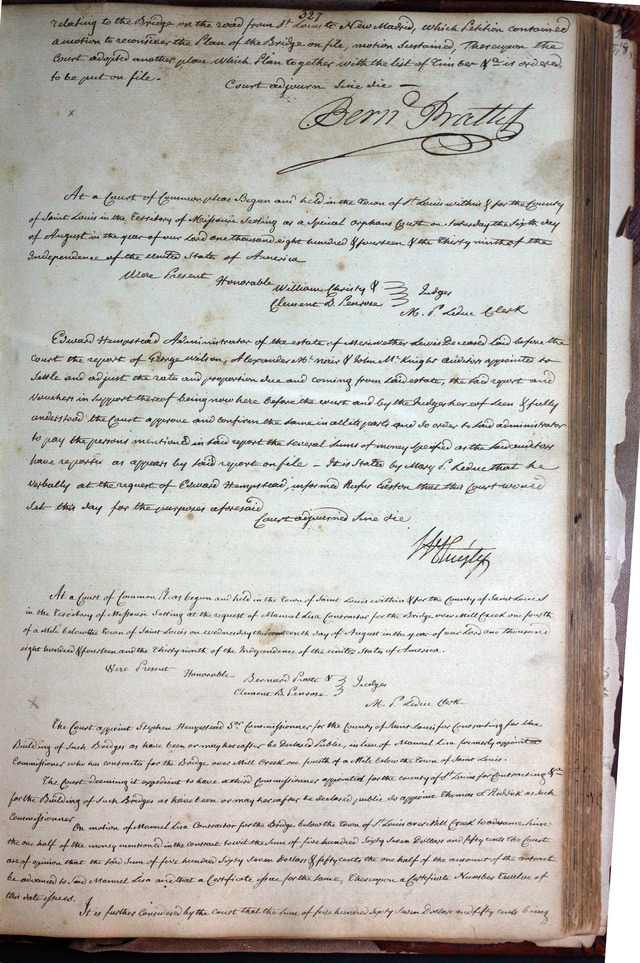 327
relating to the Bridge on the road from St Louis to New Madrid, which Petition contained
a motion to reconsider the Plan of the Bridge on file, motion Sustained, Thereupon the
Court adopted another plan which Plan together with the list of Timber &ca is ordered
to be put on file.
Court adjourn Sine die —
Bernd Pratte
At a Court of Common pleas Begun and held in the Town of St Louis within & for the County
of Saint Louis in the Territory of Missouri Setting as a Special orphans Court on Saturday the Sixth day
of August in the year of our Lord one thousand eight hundred & fourteen & the Thirty ninth of the
Independence of the United State of America
Were Present Honorable William Christy & Judges
Clement B. Penrose
M. P. Leduc Clerk
Edward Hempstead Administrator of the estate of Meriwether Lewis Deceased laid before the
Court the report of George Wilson, Alexander McNair & John McKnight auditors appointed to
Settle and adjust the rates and proportion due and coming from Said estate, the Said report and
Vouchers in Support thereof being now here before the court and by the Judges hereof Seen & fully
understood the Court approve and confirm the same in all its parts and do order to Said administrator
to pay the persons mentioned in Said report the Several Sums of money Specified as the Said auditors
have reported as appears by Said report on file – It is Stated by Mary P. Leduc that he
verbally at the request of Edward Hempstead, informed Rufus Easton that this Court would
Set this day for the purposes aforesaid
Court adjourned Sine die
Wm Christy
At a Court of Common Pleas begun and held in the Town of Saint Louis within & for the County of Saint Louis
in the Territory of Missouri Setting at the request of Manuel Lisa Contractor for the Bridge over Mill Creek one fourth
of a Mile below the town of Saint Louis on wednesday the day of August in the year of our Lord one thousand
eight hundred & fourteen and the Thirty ninth of the Independence of the united States of America.
Were Present Honorable Bernard Pratte & Judges
Clement B. Penrose
M. P. Leduc Clerk
The Court appoint Stephen Hempstead Senr Commissionner for the County of Saint Louis for Contracting for the
Building of Such Bridges as have been or may hereafter be declared Public, in lieu of Manuel Lisa formerly appointed
Commissioner who has contracted for the Bridge over Mill Creek one fourth of a Mile below the Town of Saint Louis.
The Court deeming it expedient to have a third Commissionner appointed for the county of St Louis for Contracting &ca
for the Building of Such Bridges as have been or may hereafter be declared public do appoint Thomas F. Riddick as Such
Commissionner
On motion of Manuel Lisa Contractor for the Bridge below the town of St Louis over Mill Creek to advance him
the one half of the money mentioned in the contract to wit the Sum of five hundred Sixty Seven Dollars and fifty cents the Court
are of opinion that the said Sum of five hundred Sixty Seven Dollars & fifty cents the one half of the amount of the contract
be advanced to Said Manuel Lisa and that a Certificate issue for the Same, Thereupon a Certificate Number Twelve of
this date issued.
It is further Considered by the court that the Sum of five hundred Sixty Seven Dollars and fifty cents being